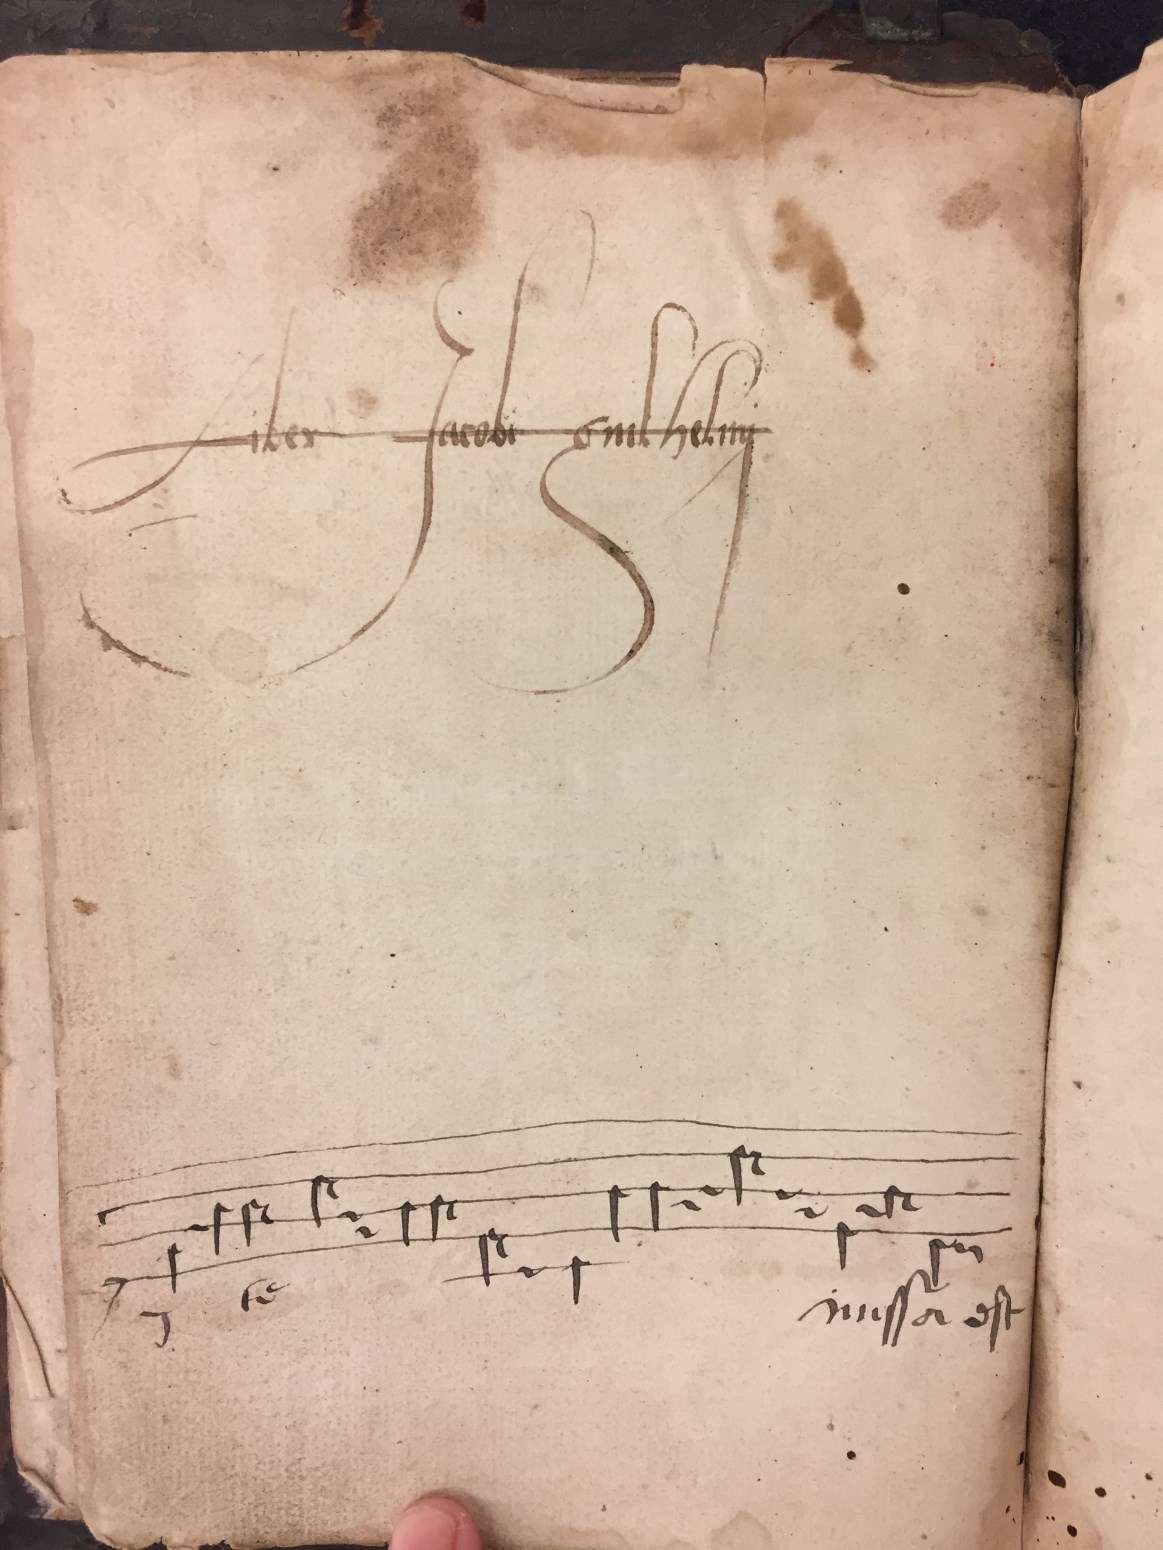 Liber Jacobi Guilhelmj
J te missa est